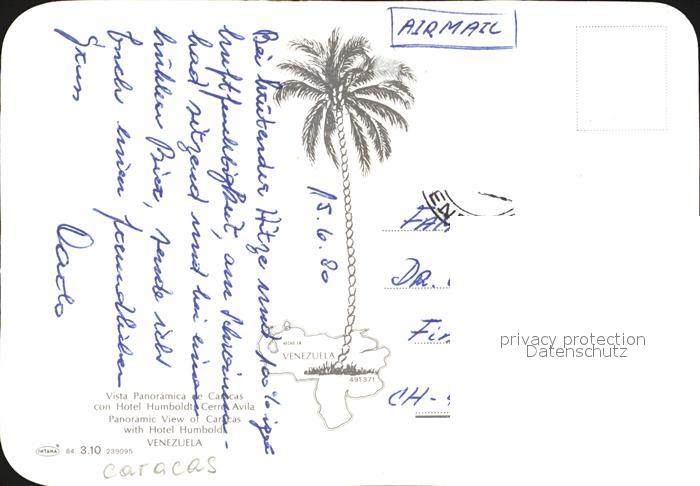 AIRMAIL
15.6.80
Bei brütender Hitze und 100%iger
Luftfeuchtigkeit, am Schwimm-
bad sitzend und bei einem
kühlen Bier, sende ich
Euch einen freundlichen
Gruss
FAM
DR.
CH-
privacy protection
Datenschutz
HECHO EN
VENEZUELA
491371
Vista Panorámica de Caracas
con Hotel Humboldt, Cerro Avila
Panoramic View of Caracas
with Hotel Humboldt
VENEZUELA
INTANA 84 3.10 239095
caracas